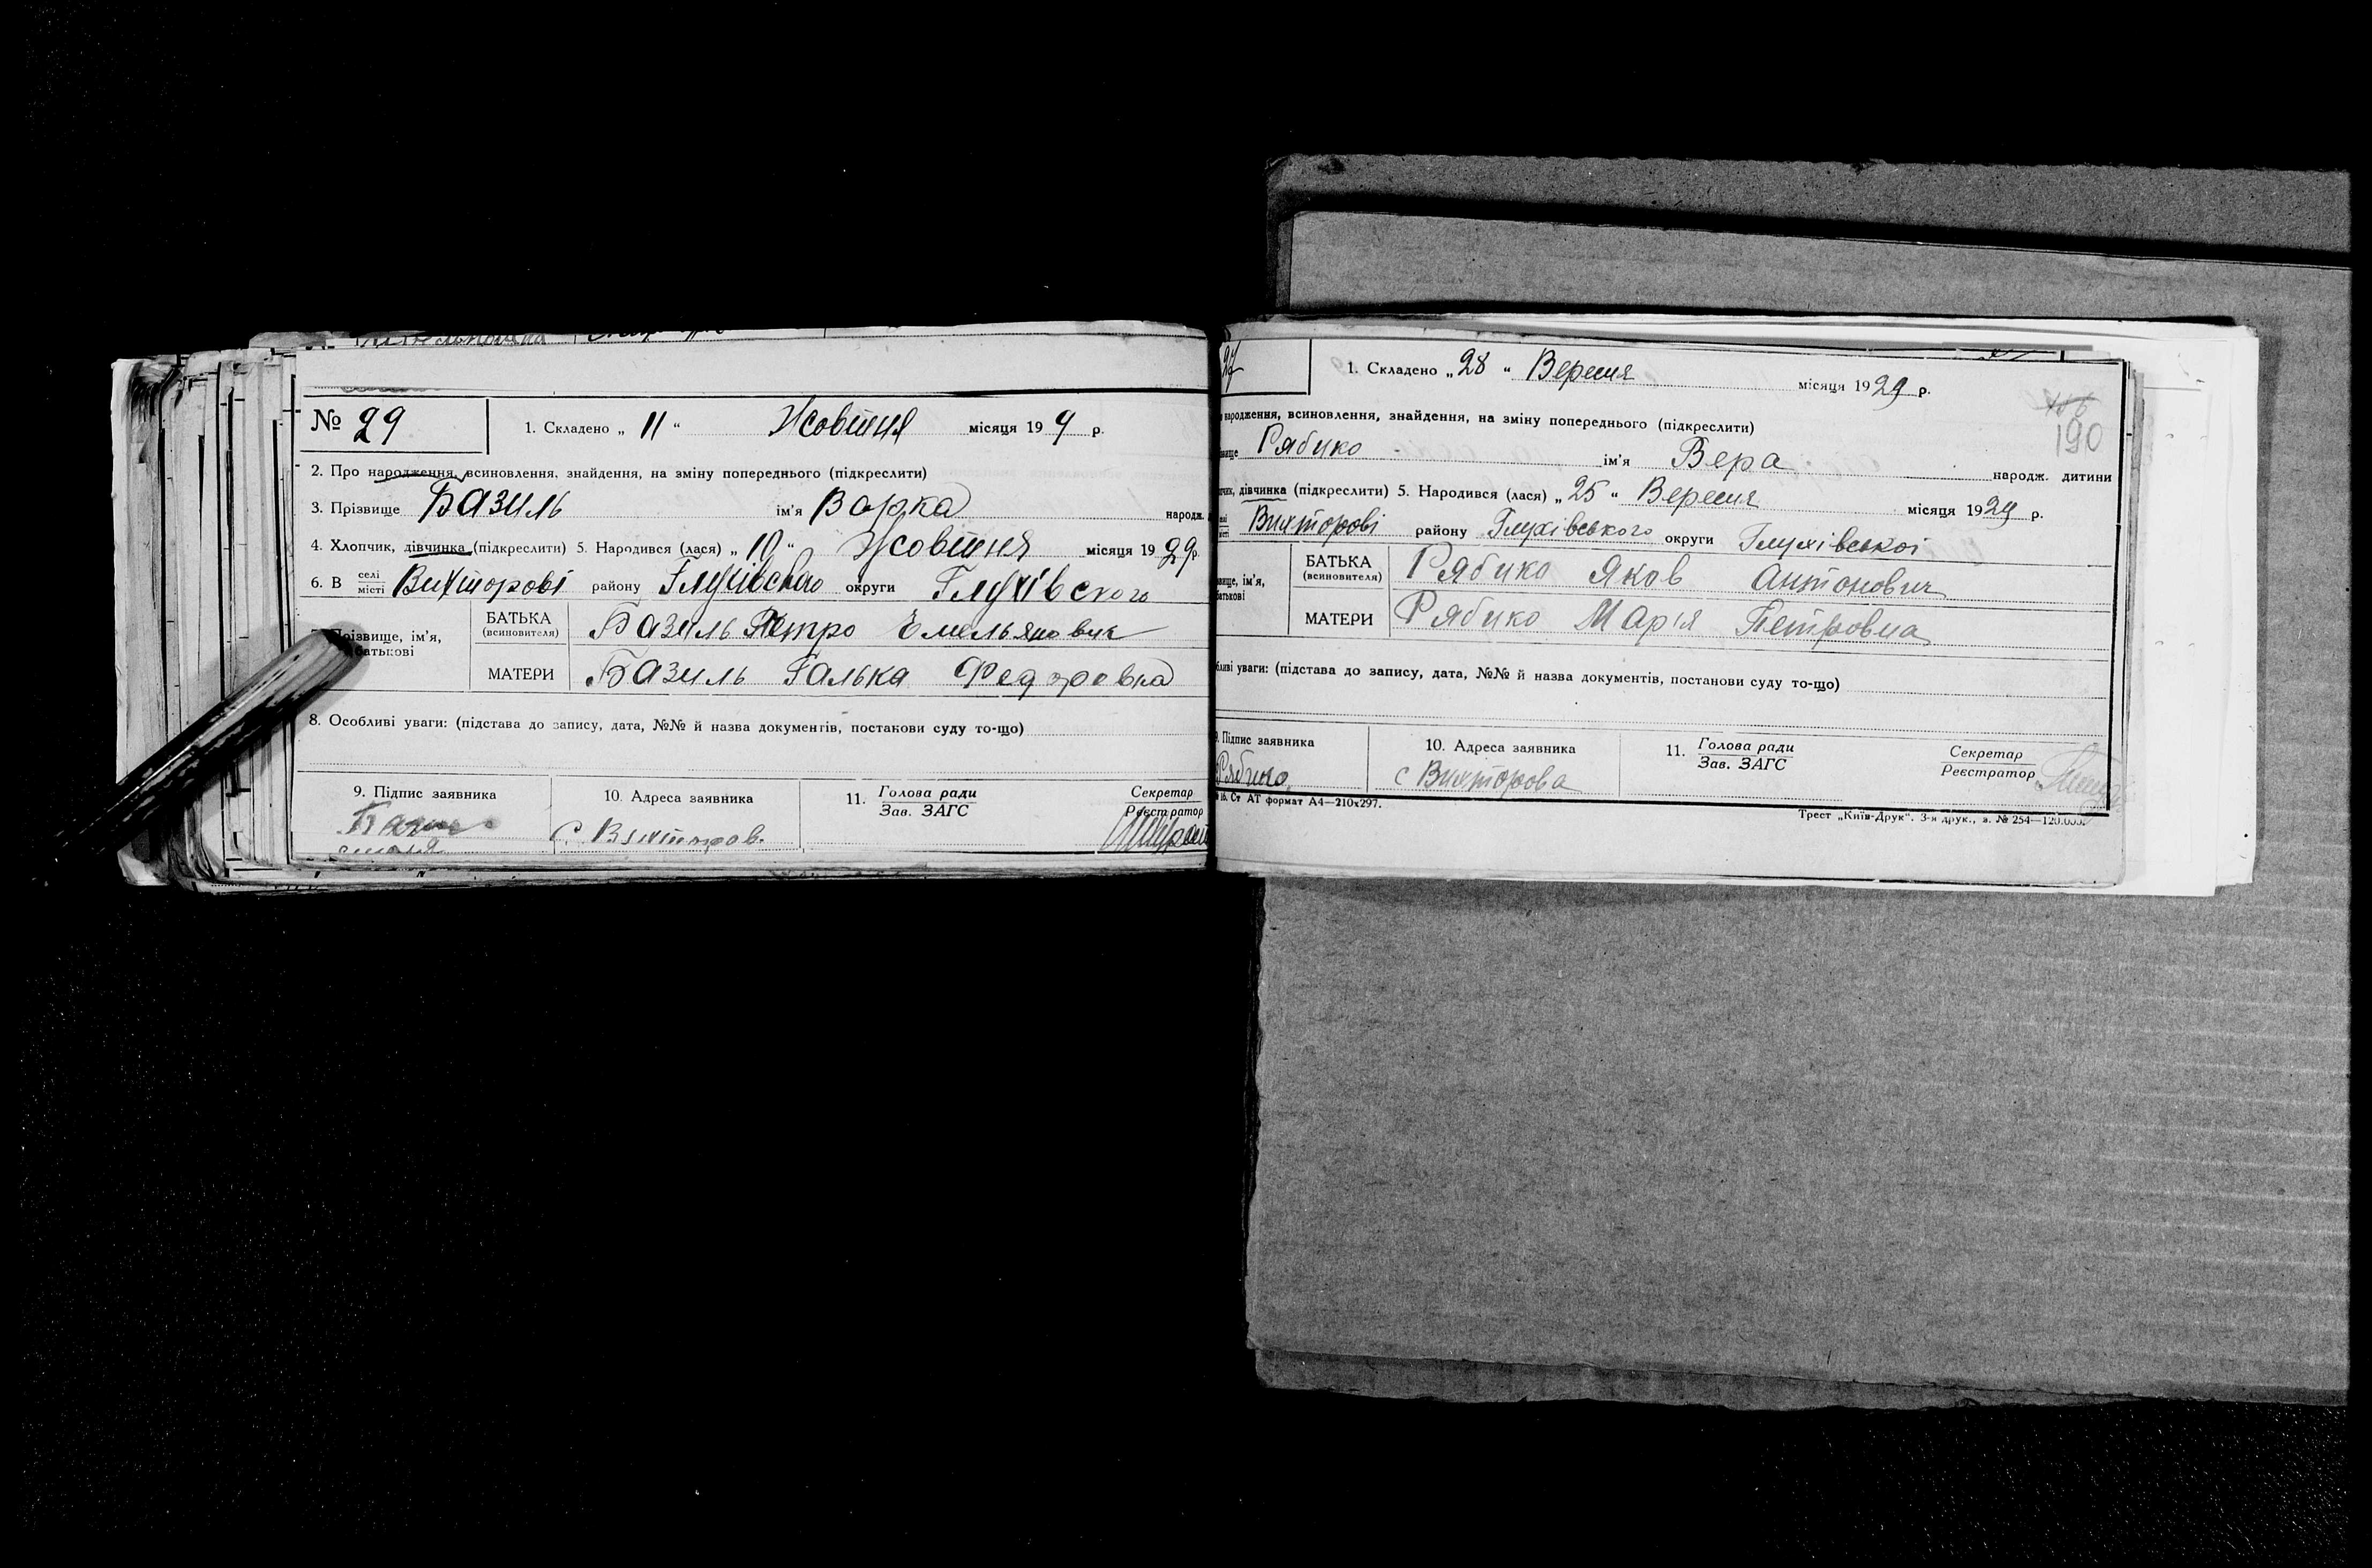 № 29
1. Складено „ 11 “ Жовтня місяця 19 9 р.
2. Про народження, всиновлення, знайдення, на зміну попереднього (підкреслити)
3. Прізвище Базиль ім'я Варка народж.
4. Хлопчик, дівчинка (підкреслити) 5. Народився (лася) „ 10 “ Жовтня місяця 19 29 р.
6. В селі місті Вихторові району Глухівского округи Глухівского
Прізвище, ім'я, батькові
БАТЬКА (всиновителя) Базиль Петро Емельянович
МАТЕРИ Базиль Галька Федоровна
8. Особливі уваги: (підстава до запису, дата, №№ й назва документів, постанови суду то-що)
9. Підпис заявника 10. Адреса заявника 11. Голова ради Зав. ЗАГС Секретар Реєстратор
с. Вихторов.
27
1. Складено „ 28 “ Вересня місяця 19 29 р.
190
народження, всиновлення, знайдення, на зміну попереднього (підкреслити)
Рябико ім'я Вера народж. дитини
дівчинка (підкреслити) 5. Народився (лася) „ 25 “ Вересня місяця 19 29 р.
Вихторові району Глухівського округи Глухівської
БАТЬКА (всиновителя) Рябико Яков Антонович
МАТЕРИ Рябико Марія Петровна
уваги: (підстава до запису, дата, №№ й назва документів, постанови суду то-що)
Підпис заявника 10. Адреса заявника 11. Голова ради Зав. ЗАГС Секретар Реєстратор
Рябико с Вихторова
16. Ст АТ формат А4—210х297.
Трест „Київ-Друк“. 3-я друк., з. № 254—120.000.